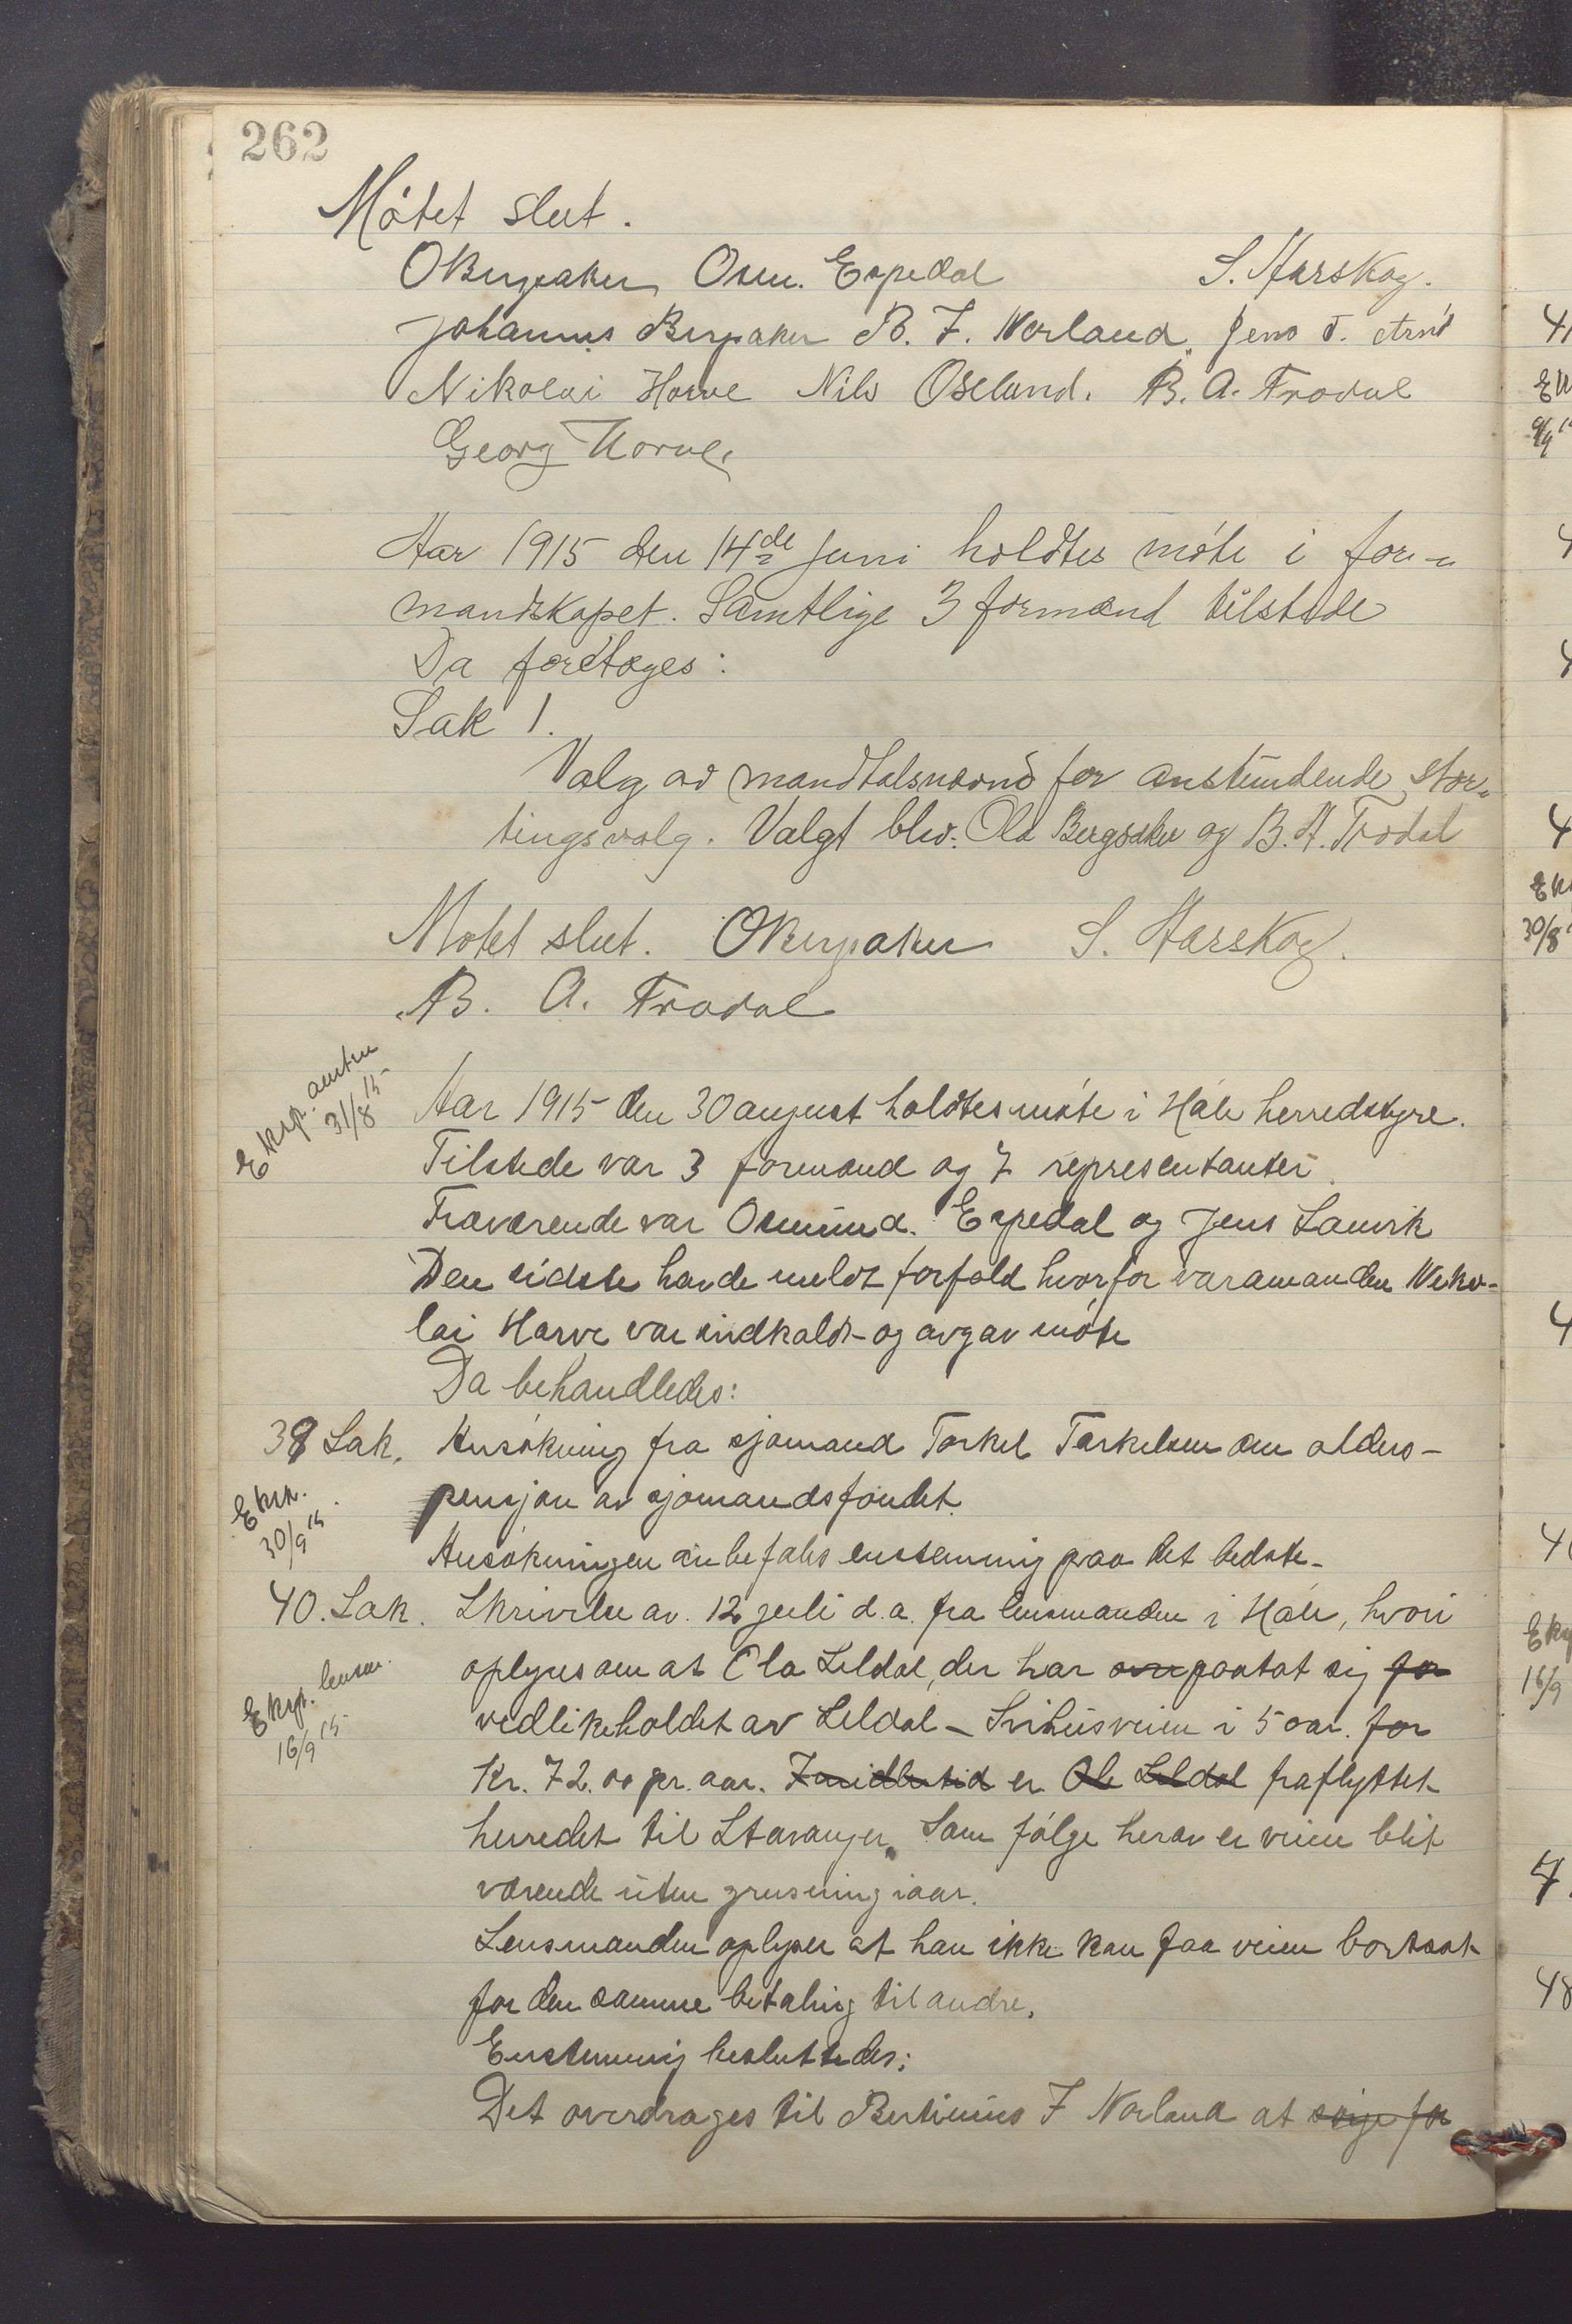 262
Møtet slut.
OBergsaker Osm. Espedal S. Harskog.
Johannes Bergsaker B. F. Norland. Jens T.
Nikolai Horve Nils Oseland. B. A. Trodal
Georg Horve.
Aar 1915 den 14de juni holdtes møte i for-
mandskapet. Samtlige 3 formænd tilstede
Da foretages:
Sak 1.
Valg av mandtalsnævnd for anstundende stor-
tingsvalg. Valgt blev: Ola Bergsaker og B. A. Trodal
Møtet slut. OBergsaker S. Harskog.
B. A. Trodal
Eksp. amtm
31/8 15
Aar 1915 den 30 august holdtes møte i Høle herredstyre.
Tilstede var 3 formænd og 7 representanter.
Fraværende var Osmund. Espedal og Jens Lauvik
Den sidste havde meldt forfald hvorfor varamanden Niko-
lai Horve var indkaldt og avgav møte
Da behandledes:
39 Sak. Ansøkning fra sjømand Torkel Torkelsen om alders-
pensjon av sjømandsfondet.
Eksp.
30/9 15.
Ansøkningen anbefales enstemmig paa det bedste.
40. Sak. Skrivelse av 12 juli d.a. fra lensmanden i Høle, hvori
oplyses om at Ola Seldal, der har paatat sig for
Eksp. lensm.
16/9 15
vedlikeholdet av Seldal - Svihusveien i 5 aar for
Kr. 72.00 pr. aar. Imidlertid er Ole Seldal fraflyttet
herredet til Stavanger. Som følge herav er veien blit
værende uten grusning iaar.
Lensmanden oplyser at han ikke kan faa veien bortsat
for den samme betaling til andre.
Enstemmig besluttedes:
Det overdrages til Bertinius F Norland at sørge for